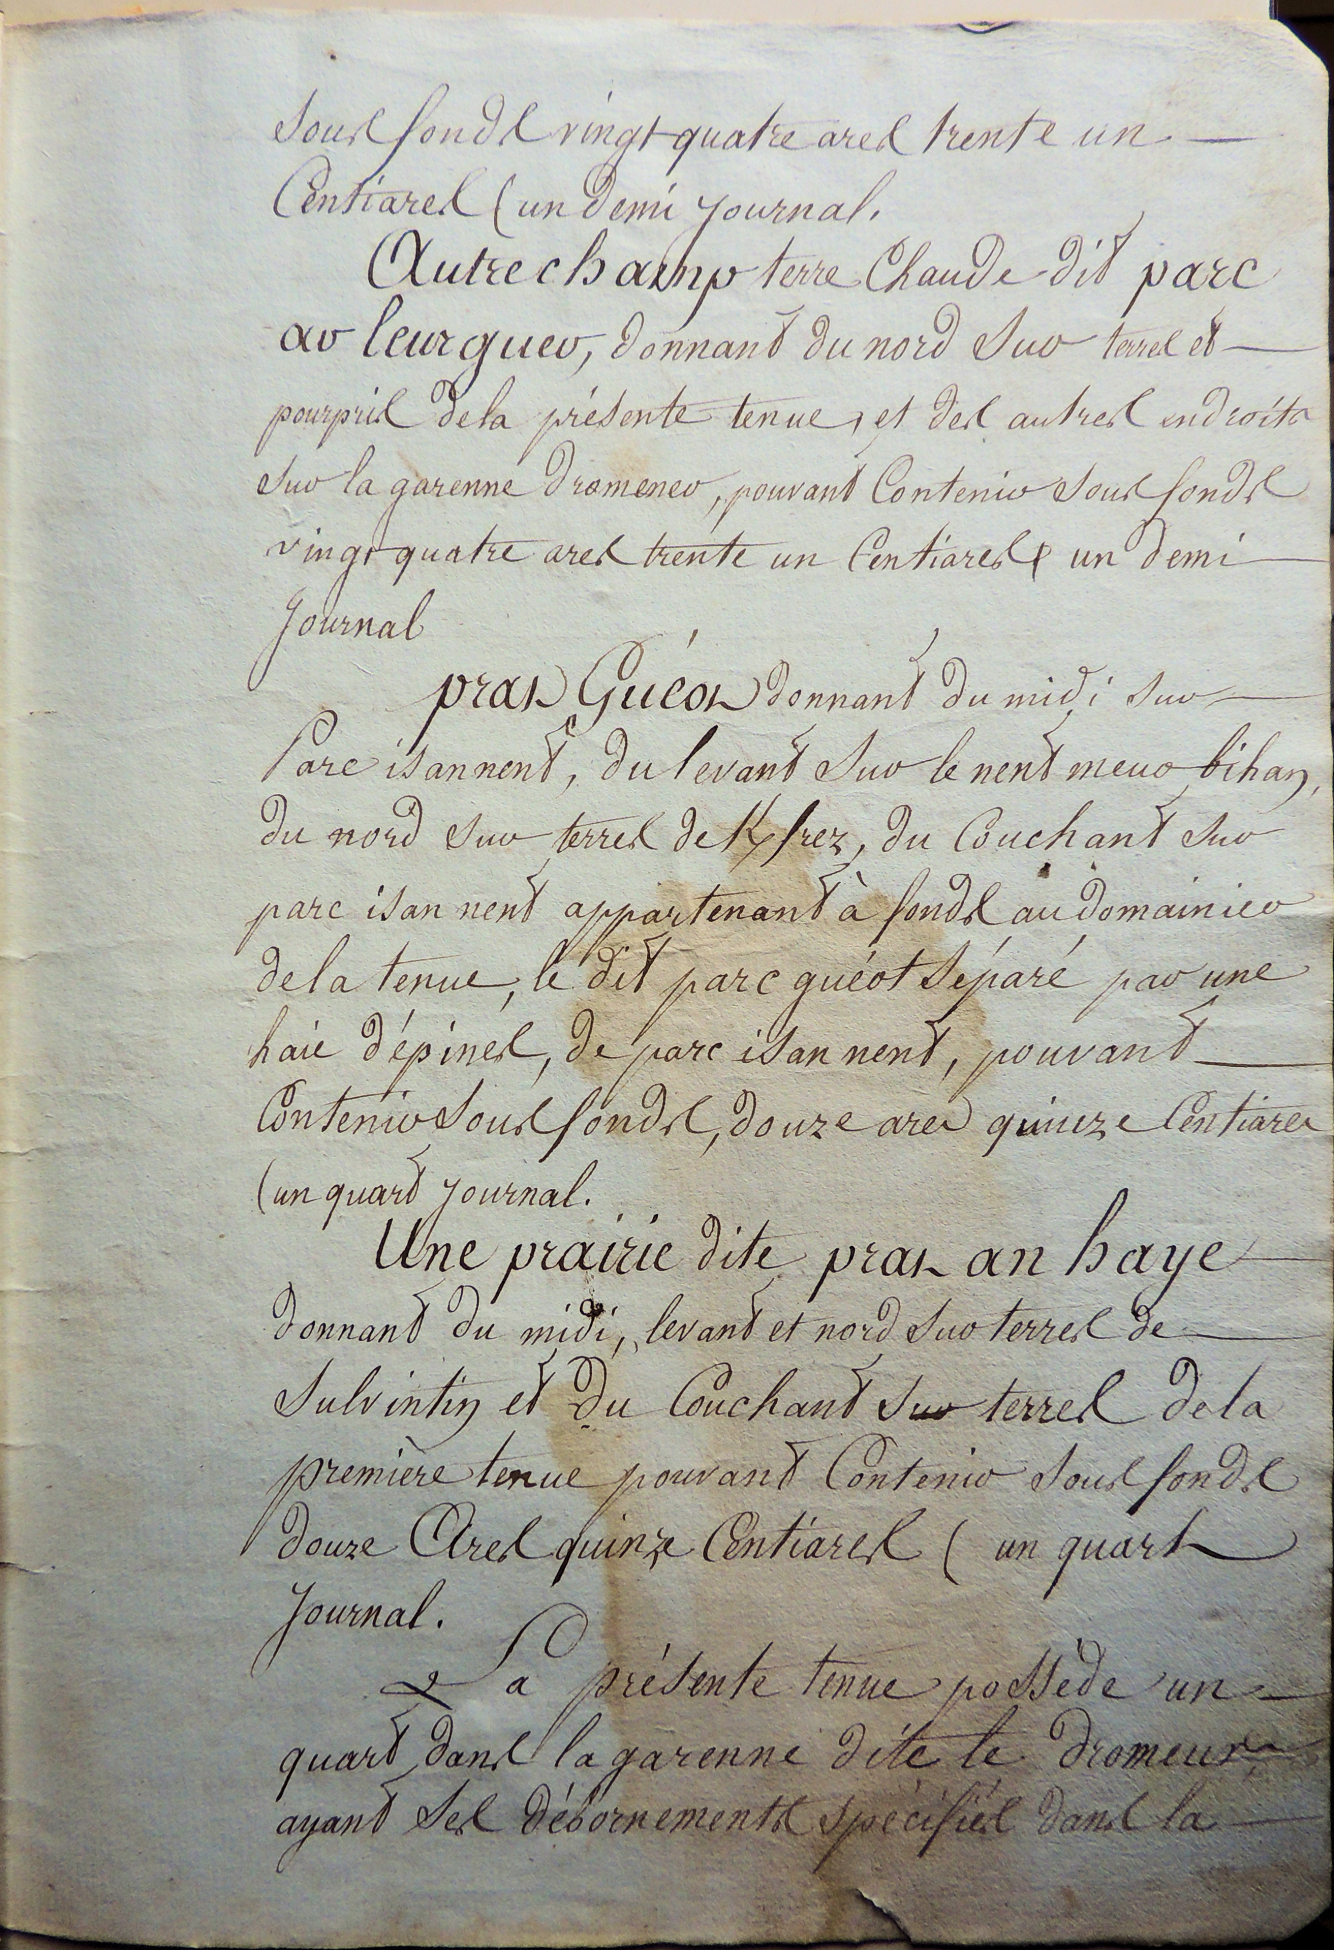 sous fonds vingt quatre ares trente un
Centiares (un demi journal.
Autre champ terre Chaude dit parc
ar leurguer, donnant du nord Sur terres et
pourpris de la présente tenue, et des autres endroits
Sur la garenne dromener, pouvant Contenir sous fonds
vingt quatre ares trente un Centiares ( un demi
Journal
pras Guéot donnant du midi Sur
Parc isannent, du levant Sur le nent meur bihan,
du nord Sur terres de K/frez, du Couchant Sur
parc isan nent appartenant à fonds au domainier
de la tenue, le dit parc guéot Séparé par une
haie d'épines, de parc isan nent, pouvant
Contenir Sous fonds, douze ares quinze Centiares
(un quart Journal.
Une prairie dite pras an haye
donnant du midi, levant et nord Sur terres de
Sulvintin et Du Couchant Sur terres de la
première tenue pouvant Contenir Sous fonds
douze Ares quinze Centiares ( un quart
Journal.
La présente tenue possède un
quart dans la garenne dite le dromeur,
ayant Ses débornements Spécifiés dans la